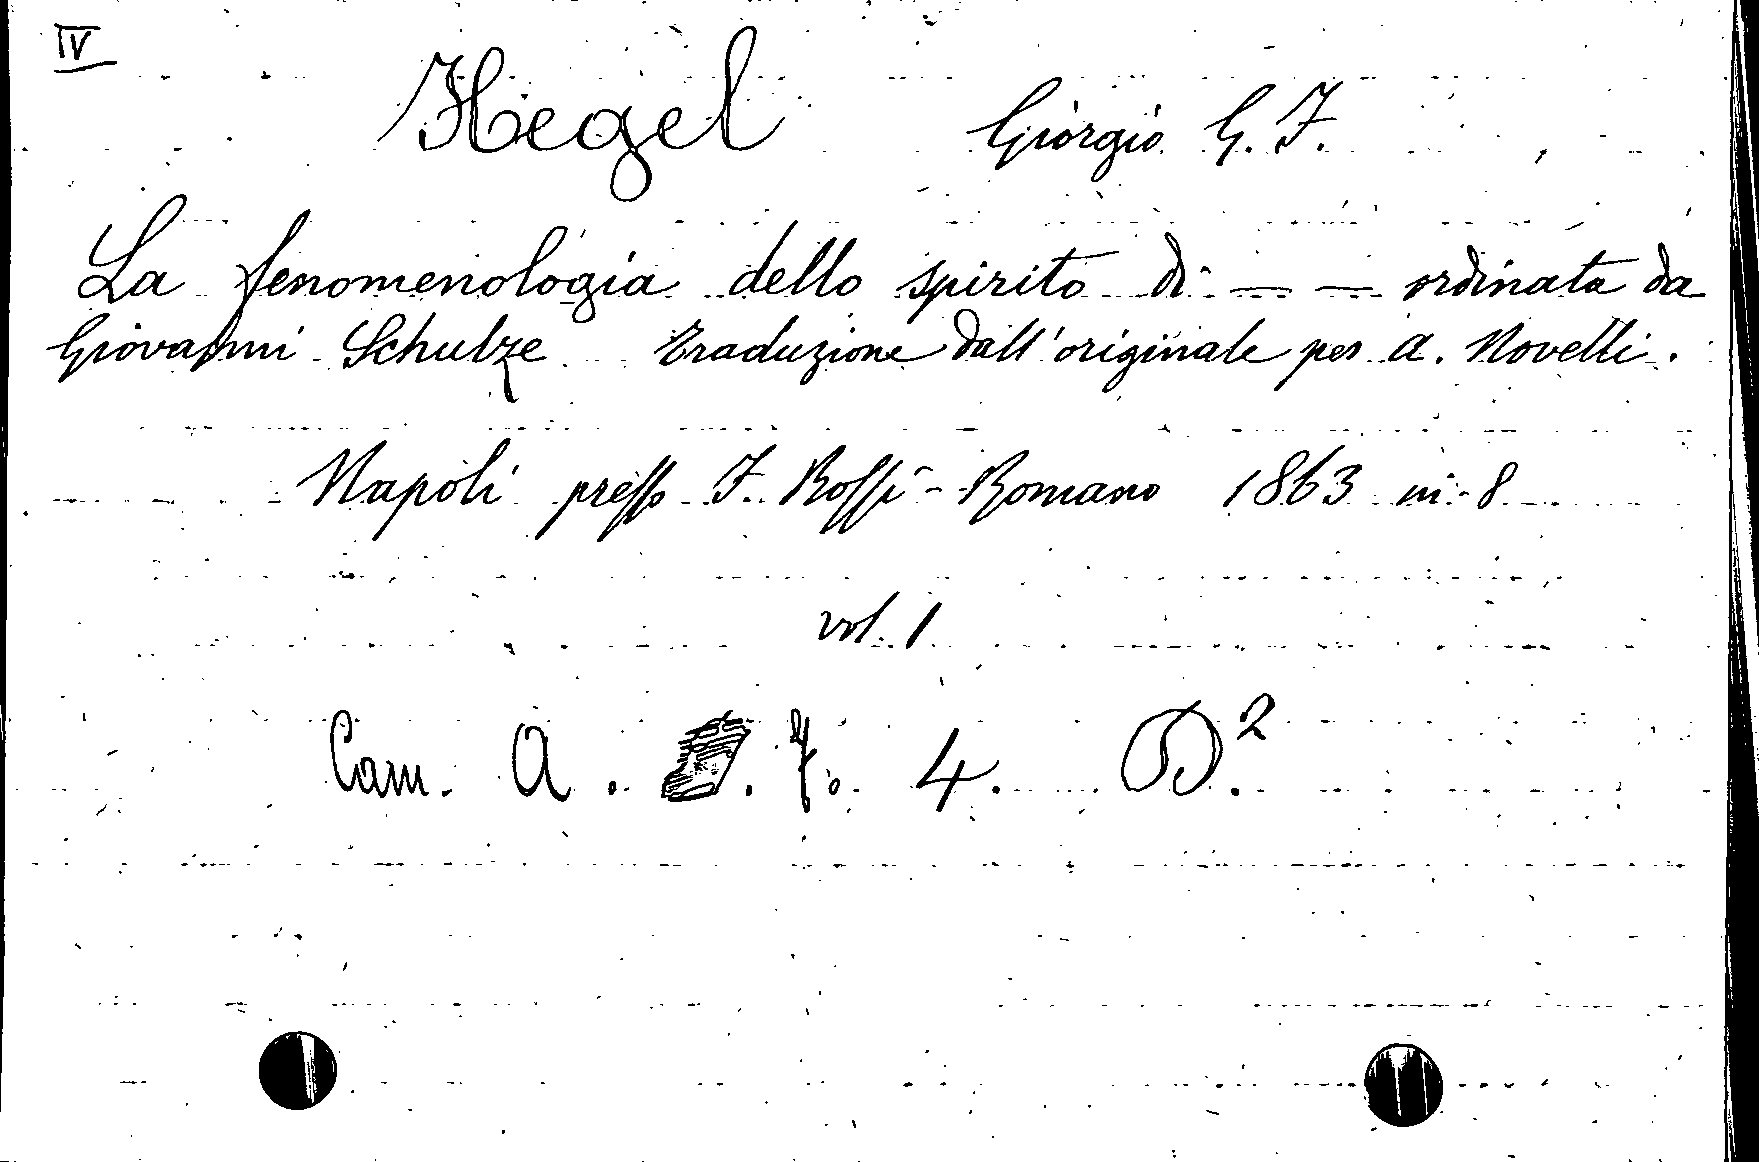 IV
Hegel Giorgio G. F.
La fenomenologia dello spirito di — — ordinata da
Giovanni Schulze Traduzione dall'originale per A. Novelli.
Napoli presso F. Rossi-Romano 1863 in-8
vol. 1
Cam. A. 4. D².